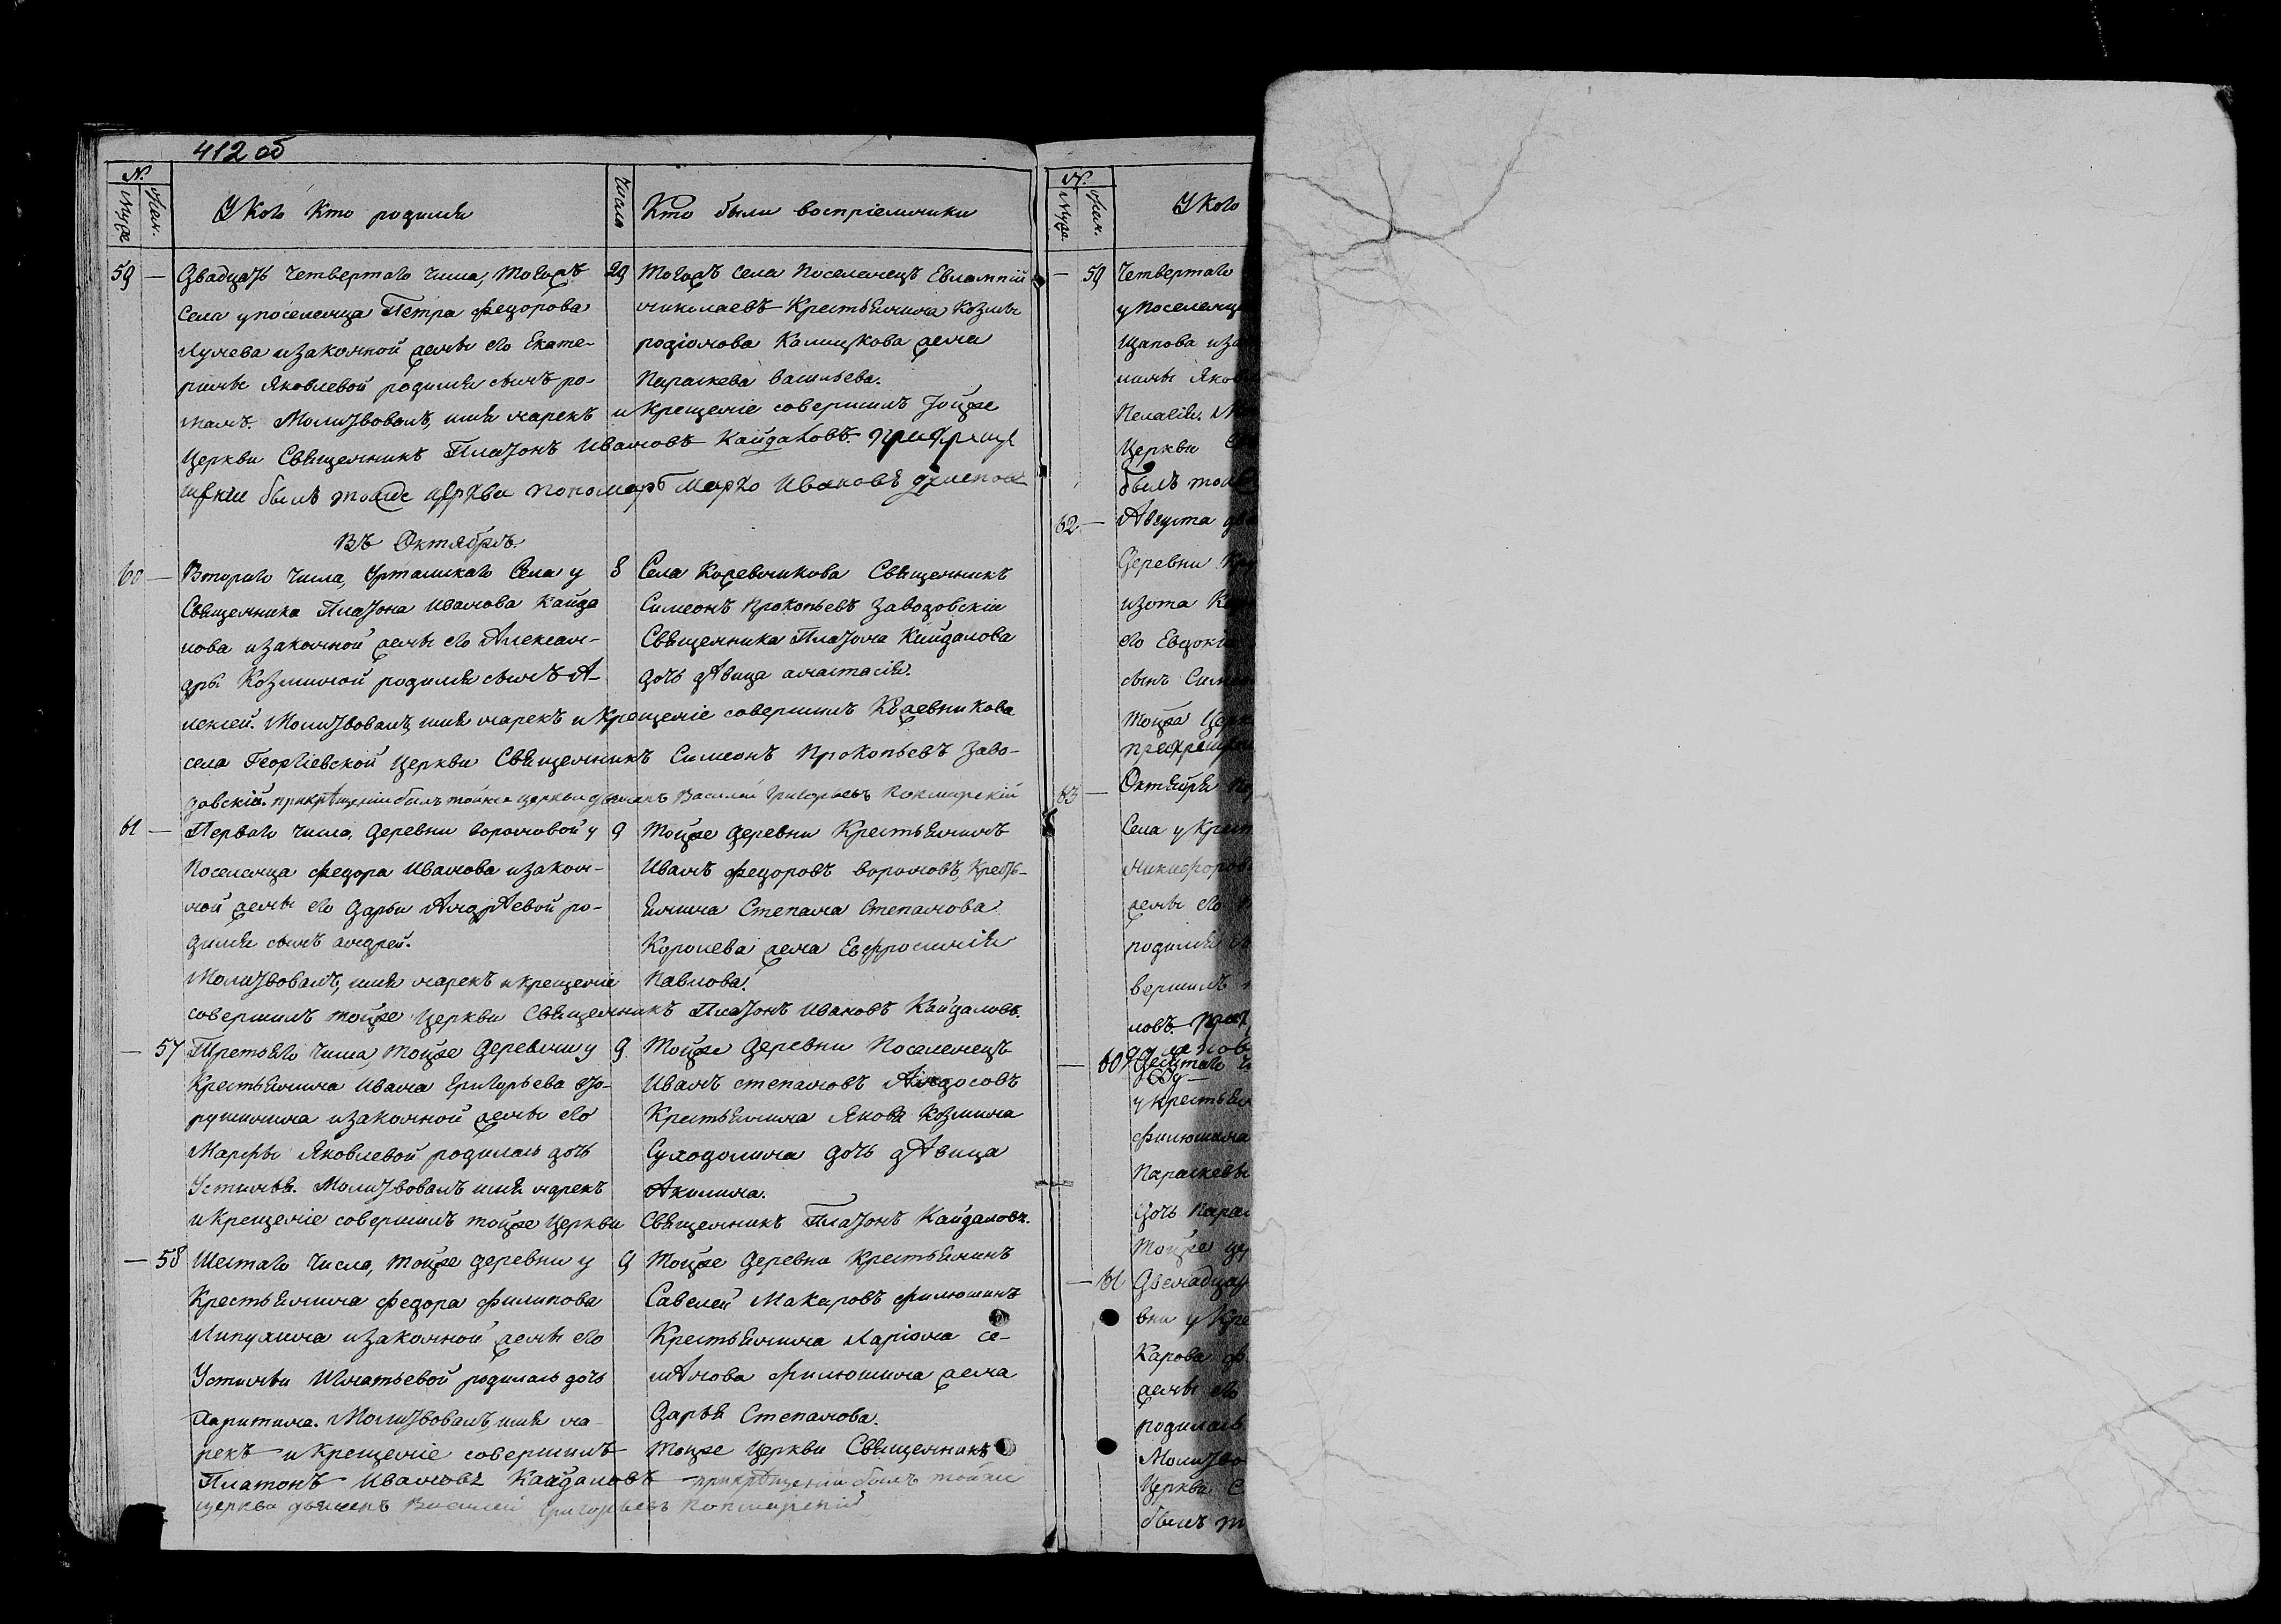 412 об
№.
Муже.
Жен.
У Кого кто родился
Число
Кто были воспріемники
59 — Двадцать четвертаго числа, тогожъ
Села у поселенца Петра Федорова
Лунева и законной жены его Екате-
рины Яковлевой родился сынъ ро-
манъ. Молитвовалъ, имя нарекъ и Крещеніе совершилъ тойже
Церкви Священникъ Платонъ Ивановъ Кайдаловъ. при креще
щеніи былъ тойже церкви пономарь Марко Ивановъ
29 Тогожъ села Поселенецъ Евлампій
Николаевъ Крестьянина Козмы
родіонова жена
Параскева Васильева.
Въ Октябрѣ.
60 — Втораго числа, Урталискаго Села у
Священника Платона Иванова Кайда
лова и законной жены его Алексан-
дры Козминой родился сынъ А-
лексей. Молитвовалъ, имя нарекъ и Крещеніе совершилъ Кожевникова
села Георгіевской Церкви Священникъ Симеонъ Прокопьевъ Заво-
довскій. при крѣщеніи былъ тойже церкви дьячекъ Василей Григорьевъ
8 Села Кожевникова Священникъ
Симеонъ Прокопьевъ Заводовскій
Священника Платона Кайдалова
дочь дѣвица анастасія.
61 — Перваго числа, деревни вороновой у
Поселенца Федора Иванова и закон-
ной жены его Дарьи Андрѣевой ро-
дился сынъ андрей.
Молитвовалъ, имя нарекъ и крещеніе
совершилъ тойже Церкви Священникъ Платонъ Ивановъ Кайдаловъ.
9 Тойже деревни Крестьянинъ
Иванъ Федоровъ вороновъ, Кресть-
янина Степана Степанова
Королева жена Евфросинія
Павлова.
— 57 Третьяго числа, тойже деревни у
Крестьянина Ивана Григорьева
и законной жены его
Марфы Яковлевой родилась дочь
Устинья. Молитвовалъ имя нарекъ
и крещеніе совершилъ тойже Церкви Священникъ Платонъ Кайдаловъ.
9 Тойже деревни Поселенецъ
Иванъ Степановъ
Крестьянина Якова Козмина
Суходолина дочь дѣвица
Акилина.
— 58 Шестаго числа, тойже деревни у
Крестьянина Федора Филипова
Липухина и законной жены его
Устиньи Игнатьевой родилась дочь
Харитина. Молитвовалъ, имя на-
рекъ и крещеніе совершилъ тойже Церкви Священникъ
Платонъ Ивановъ Кайдаловъ при крѣщеніи былъ тойже
церкви дьячекъ Василей Григорьевъ
9 Тойже деревни Крестьянинъ
Савелей Макаровъ Филюшинъ
Крестьянина Ларіона се-
мѣнова Филюшина жена
Дарья Степанова.
№.
Муже.
Жен.
У Кого
— 59 Четвертаго
у Поселенца
Церкви
былъ той
62 — Августа
Деревни
изота
его Евдокі
сынъ Симе
Тойже Церк
при креще
63 — Октября
Села у Крест
никифоров
жены его
родился
вершилъ
ловъ. при
— 60 Десятаго
у Крестьян
Филюшина
Параскевы
дочь Парас
Тойже це
— 61 Двенадцат
вни у Кре
Карова
жены его
родилась
Молитво
Церкви С
былъ т